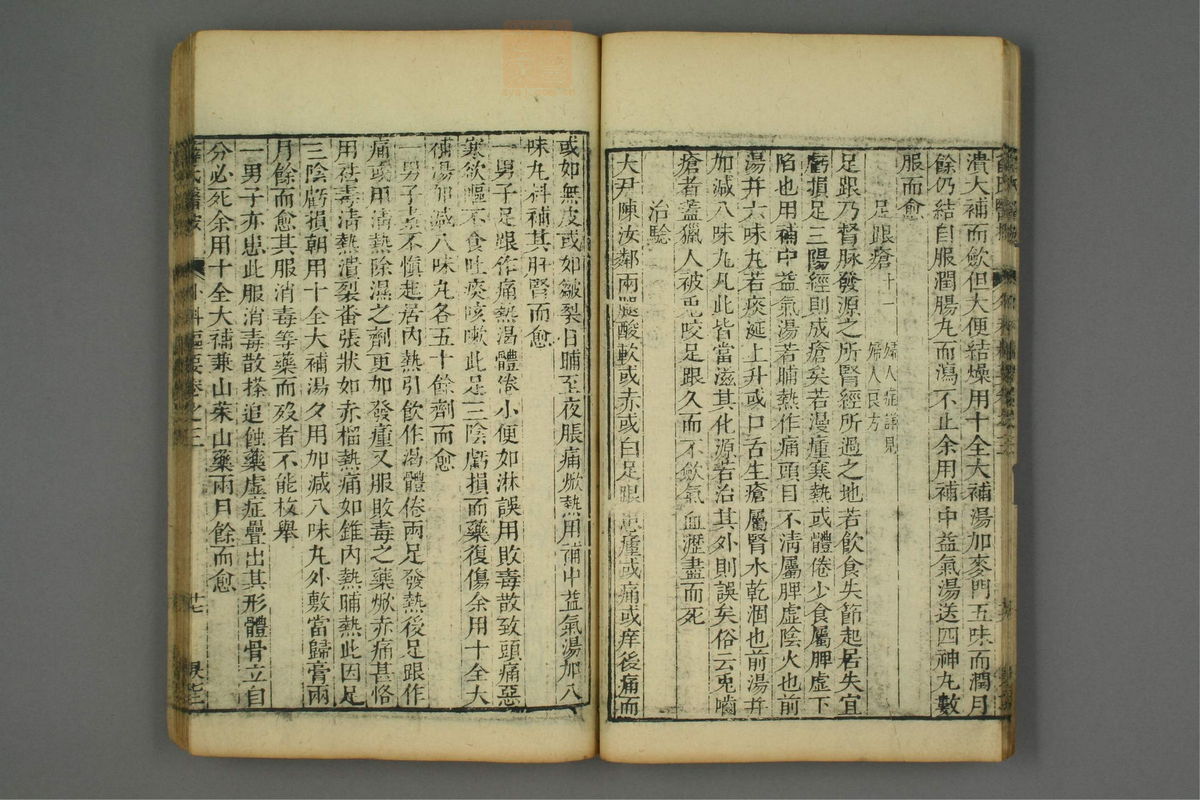 潰大補而斂但大便結燥用十全大補湯加麥門五味而潤月
餘仍結自服潤腸丸而瀉不止余用補中益氣湯送四神丸數
服而愈
足跟瘡十一 婦人症詳見婦人良方
足跟乃督脉發源之所腎經所過之地若飲食失節起居失宜
虧損足三陽經則成瘡矣若漫腫寒熱或體倦少食屬脾虛下
陷也用補中益氣湯若晡熱作痛頭目不清屬脾虛陰火也前
湯并六味丸若痰涎上升或口舌生瘡屬腎水乾涸也前湯并
加減八味丸凡此皆當滋其化源若治其外則誤矣俗云兎嚙
瘡者蓋獵人被兎咬足跟久而不斂氣血瀝盡而死
治驗
大尹陳汝鄰兩腿酸軟或赤或白足跟患腫或痛或痒後痛而
或如無皮或如皺裂日晡至夜脹痛焮熱用補中益氣湯加八
味丸料補其肝腎而愈
一男子足跟作痛熱渴體倦小便如淋誤用敗毒散致頭痛惡
寒欲嘔不食吐痰咳嗽此足三陰虧損而藥復傷余用十全大
補湯加减八味丸各五十餘劑而愈
一男子素不慎起居內熱引飲作渴體倦兩足發熱後足跟作
痛或用清熱除濕之劑更加發腫又服敗毒之藥焮赤痛甚恪
用祛毒清熱潰裂番張狀如赤榴熱痛如錐內熱晡熱此因足
三陰虧損朝用十全大補湯夕用加減八味丸外敷當歸膏兩
月餘而愈其服消毒等藥而歿者不能枚舉
一男子亦患此服消毒散搽追蝕藥虛症疊出其形體骨立自
分必死余用十全大補兼山茱山藥兩月餘而愈
薛氏醫按 外科樞要卷之三 廿七